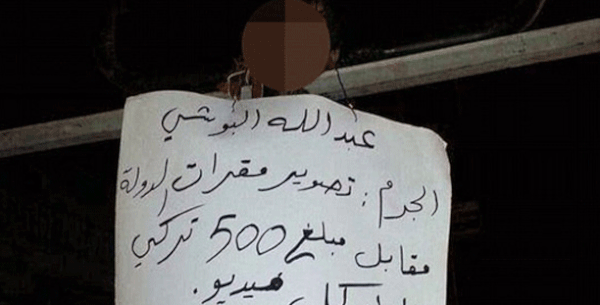 عبدالله البوشي
الجرم: تصوير مقرات الدولة
مقابل مبلغ 500 تركي
لكل فيديو.